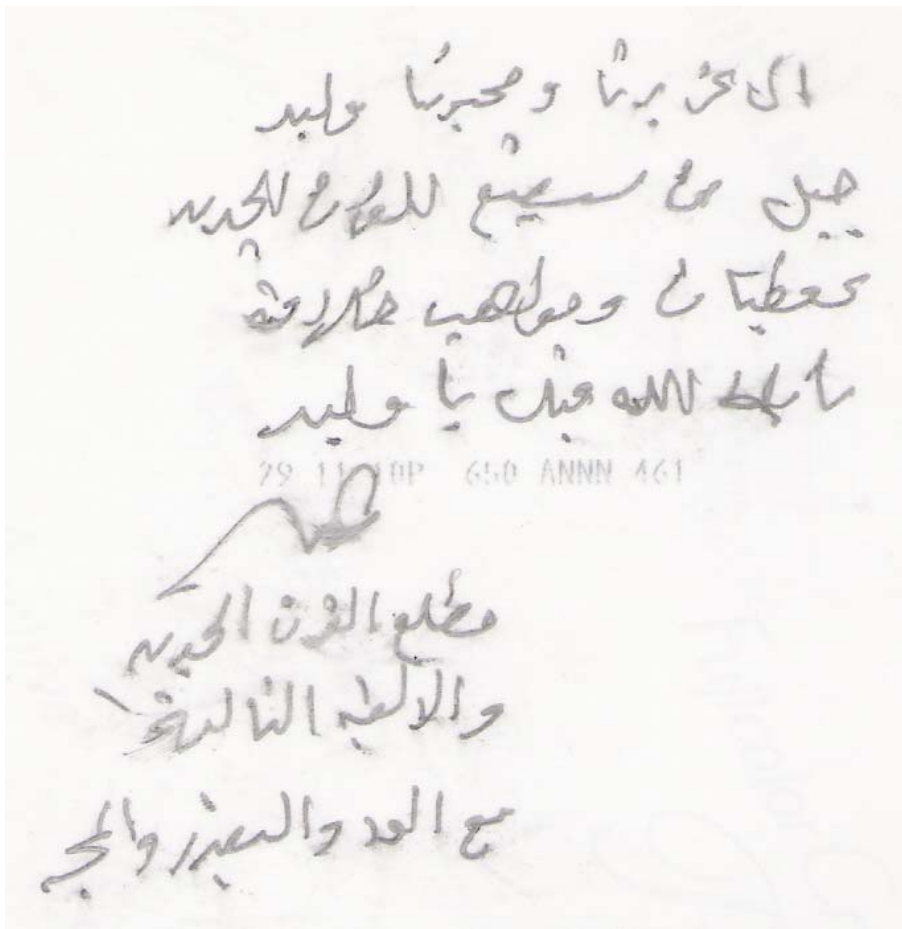 الى عزيزنا ومحبنا وليد
جيل من سيصنع للقرن الجديد
معطيات ومواهب خلاقة
بارك الله فيك يا وليد
29 11 10P 650 ANNN 461
مطلع القرن الجديد
والالفية الثالثة
مع الود والتقدير والمحبة